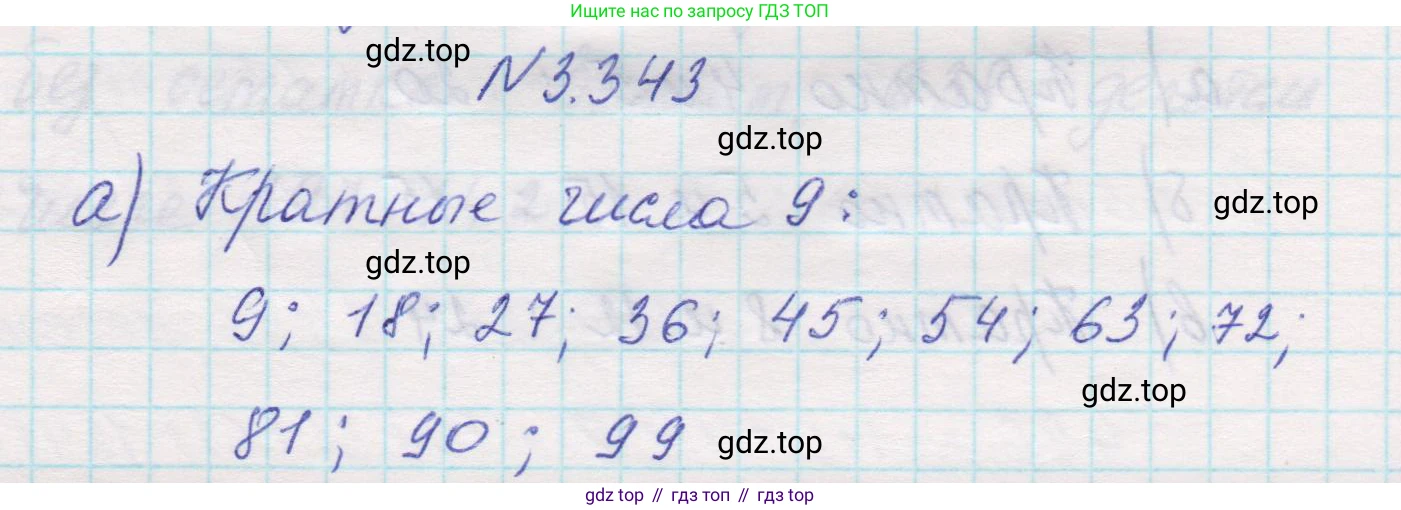 Ищите нас по запросу ГДЗ ТОП
gdz.top
N 3.343
gdz.top
а) Кратные числа 9:
gdz.top
gdz.top
9; 18; 27; 36; 45; 54; 63; 72;
gdz.top
81; 90; 99
gdz.top
gdz top // гдз топ // гдз top